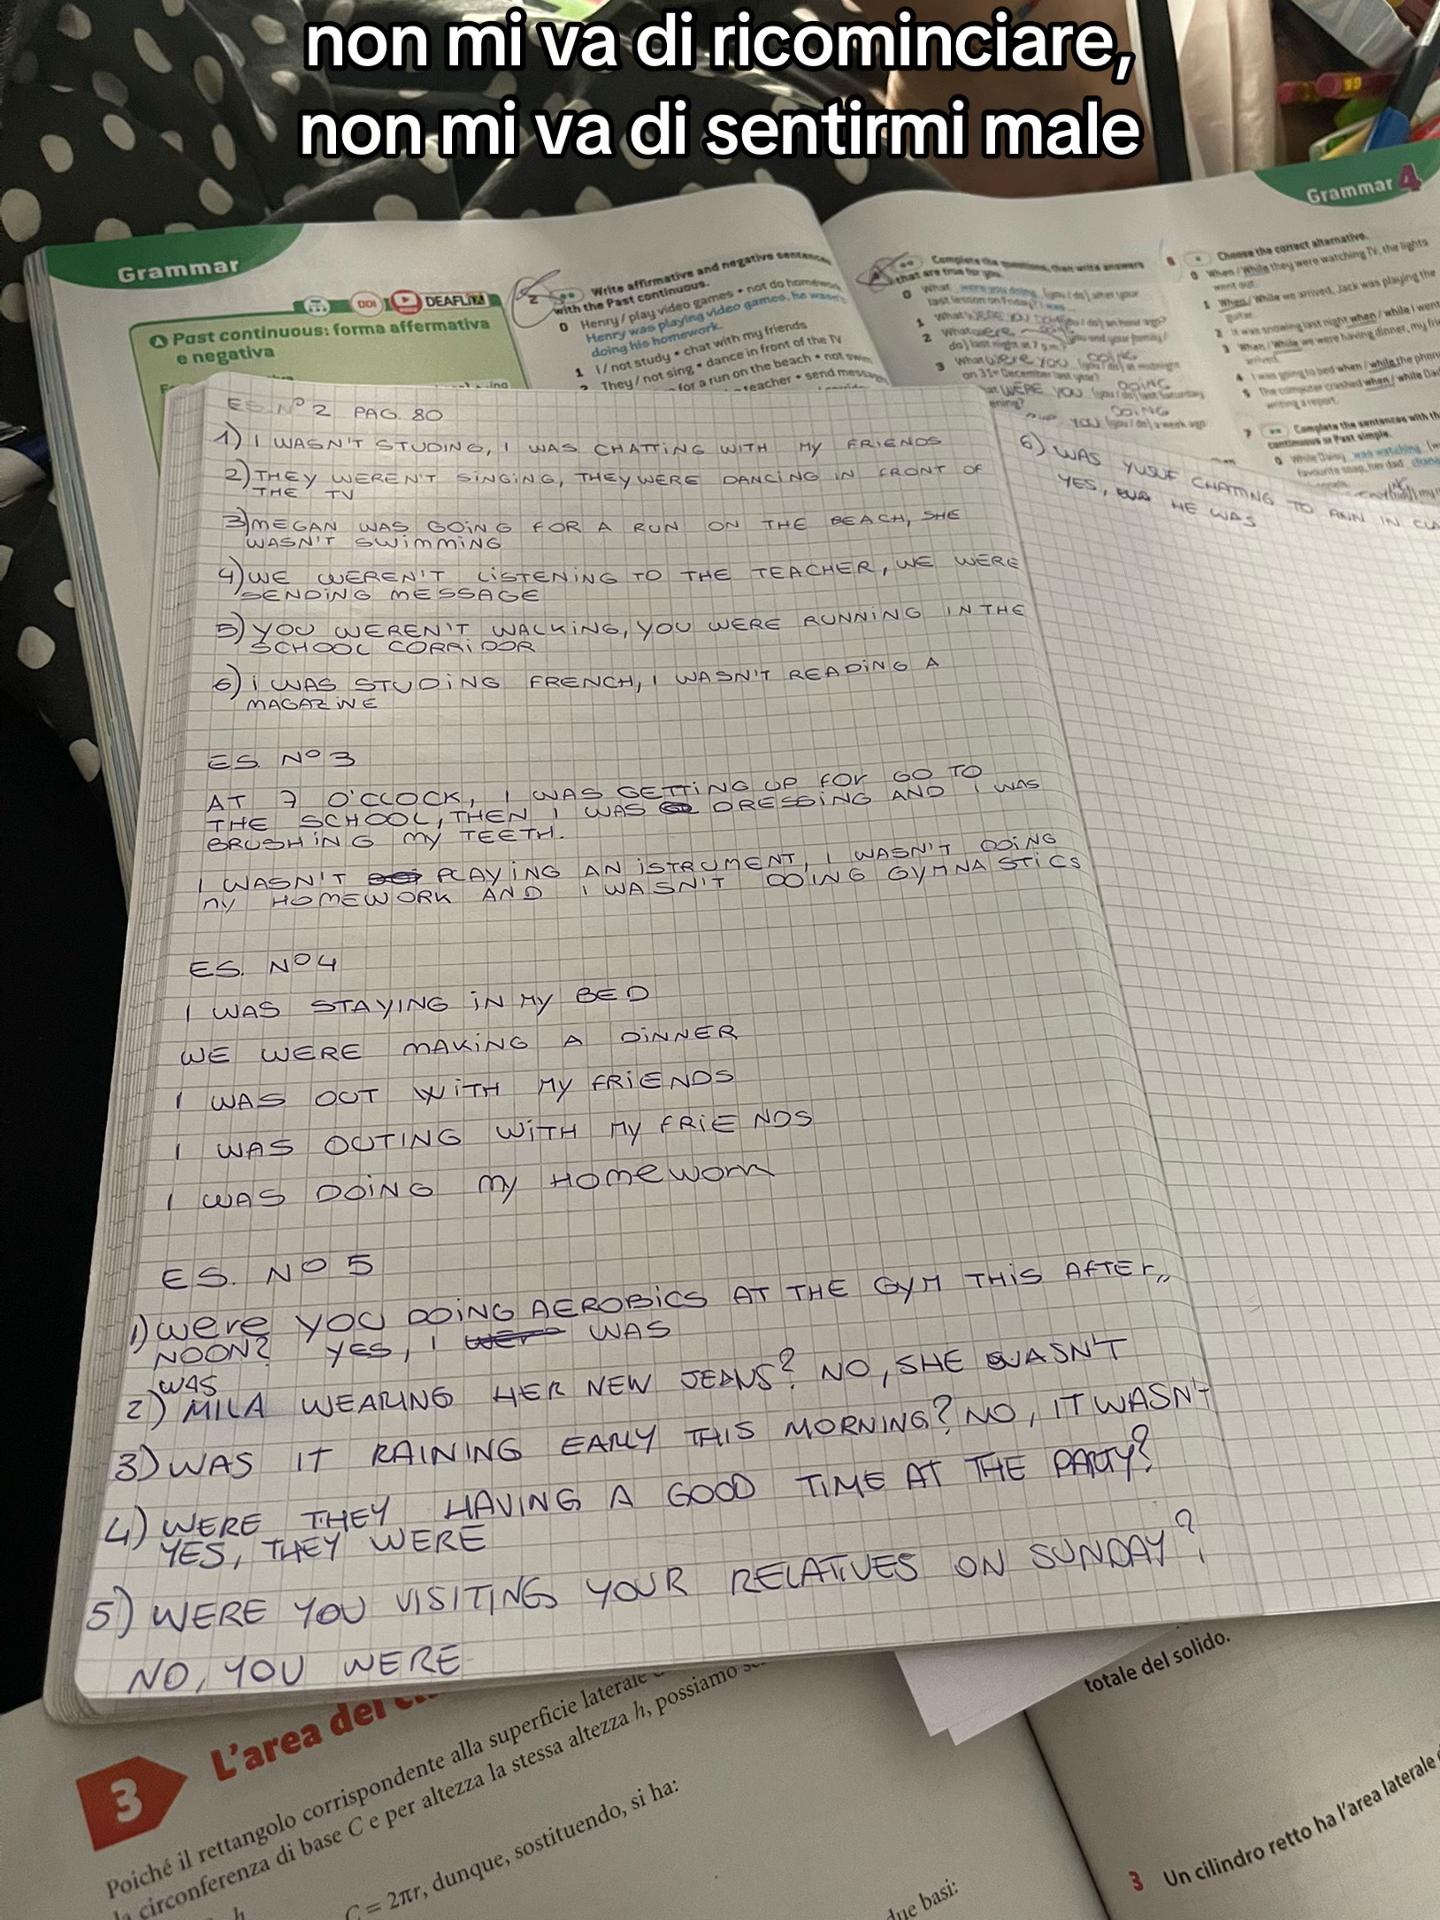 non mi va di ricominciare,
non mi va di sentirmi male
Grammar
DEAFLIX
A Past continuous: forma affermativa
e negativa
2 Write affirmative and negative sentences
with the Past continuous.
0 Henry / play video games • not do homework
Henry was playing video games, he wasn't
doing his homework.
1 I / not study • chat with my friends
2 They / not sing • dance in front of the TV
for a run on the beach • not swim
teacher • send message
Grammar 4
Complete the questions, then write answers
that are true for you.
0 What were you doing (you / do) after your
last lesson on Friday? I was
1 What WERE YOU DOING (you / do) an hour ago?
2 What were you and your family /
do) last night at 7 p.m.?
3 What were YOU DOING (you / do) at midnight
on 31st December last year?
WERE YOU DOING (you / do) last Saturday
evening?
YOU DOING (you / do) a week ago
6 Choose the correct alternative.
0 When / While they were watching TV, the lights
went out.
1 When / While we arrived, Jack was playing the
guitar.
2 It was snowing last night when / while I went
3 When / While we were having dinner, my
arrived.
4 I was going to bed when / while the phone
5 The computer crashed when / while
writing a report.
7 Complete the sentences with
continuous or Past simple.
0 While Daisy was watching
favourite soap, her dad
ES. N° 2 PAG. 80
1) I WASN'T STUDING, I WAS CHATTING WITH MY FRIENDS
2) THEY WEREN'T SINGING, THEY WERE DANCING IN FRONT OF
THE TV
3) MEGAN WAS GOING FOR A RUN ON THE BEACH, SHE
WASN'T SWIMMING
4) WE WEREN'T LISTENING TO THE TEACHER, WE WERE
SENDING MESSAGE
5) YOU WEREN'T WALKING, YOU WERE RUNNING IN THE
SCHOOL CORRIDOR
6) I WAS STUDING FRENCH, I WASN'T READING A
MAGAZINE
ES. N° 3
AT 7 O'CLOCK, I WAS GETTING UP FOR GO TO
THE SCHOOL, THEN I WAS DRESSING AND I WAS
BRUSHING MY TEETH.
I WASN'T PLAYING AN ISTRUMENT, I WASN'T DOING
MY HOMEWORK AND I WASN'T DOING GYMNASTICS
ES. N° 4
I WAS STAYING IN MY BED
WE WERE MAKING A DINNER
I WAS OUT WITH MY FRIENDS
I WAS OUTING WITH MY FRIENDS
I WAS DOING MY HOMEWORK
ES. N° 5
1) WERE YOU DOING AEROBICS AT THE GYM THIS AFTER
NOON? YES, I WAS
WAS
2) MILA WEARING HER NEW JEANS? NO, SHE WASN'T
3) WAS IT RAINING EARLY THIS MORNING? NO, IT WASN'T
4) WERE THEY HAVING A GOOD TIME AT THE PARTY?
YES, THEY WERE
5) WERE YOU VISITING YOUR RELATIVES ON SUNDAY?
NO, YOU WERE
6) WAS YUSUF CHATTING TO ANN IN
YES, HE WAS
3 L'area del
Poiché il rettangolo corrispondente alla superficie laterale
la circonferenza di base C e per altezza la stessa altezza h, possiamo
C = 2πr, dunque, sostituendo, si ha:
due basi:
totale del solido.
3 Un cilindro retto ha l'area laterale